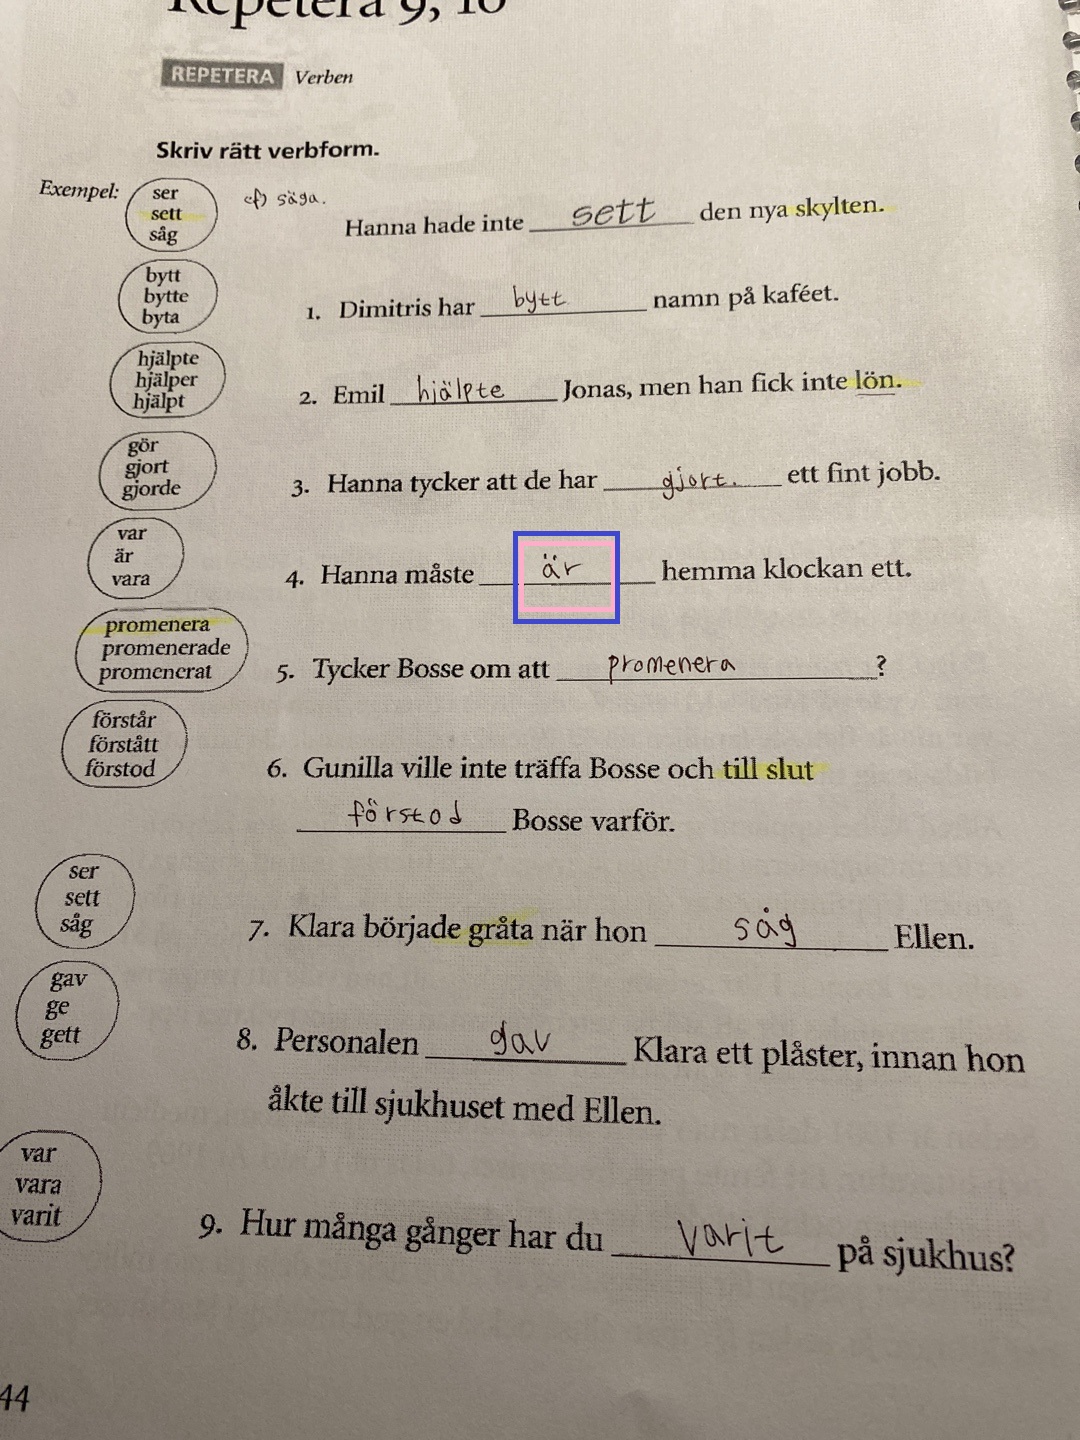 Repetera 9, 10
REPETERA Verben
Skriv rätt verbform.
Exempel:
ser
sett
såg
cf) säga.
Hanna hade inte sett den nya skylten.
bytt
bytte
byta
1. Dimitris har bytt namn på kaféet.
hjälpte
hjälper
hjälpt
2. Emil hjälpte Jonas, men han fick inte lön.
gör
gjort
gjorde
3. Hanna tycker att de har gjort. ett fint jobb.
var
är
vara
4. Hanna måste är hemma klockan ett.
promenera
promenerade
promenerat
5. Tycker Bosse om att promenera ?
förstår
förstått
förstod
6. Gunilla ville inte träffa Bosse och till slut
förstod Bosse varför.
ser
sett
såg
7. Klara började gråta när hon såg Ellen.
gav
ge
gett
8. Personalen gav Klara ett plåster, innan hon
åkte till sjukhuset med Ellen.
var
vara
varit
9. Hur många gånger har du varit på sjukhus?
44